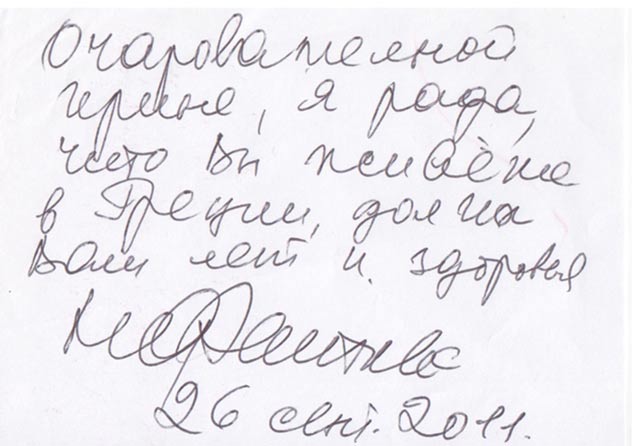 Очаровательной
Ирине, я рада,
что Вы живёте
в Греции, долгих
Вам лет и здоровья
26 сент. 2011.